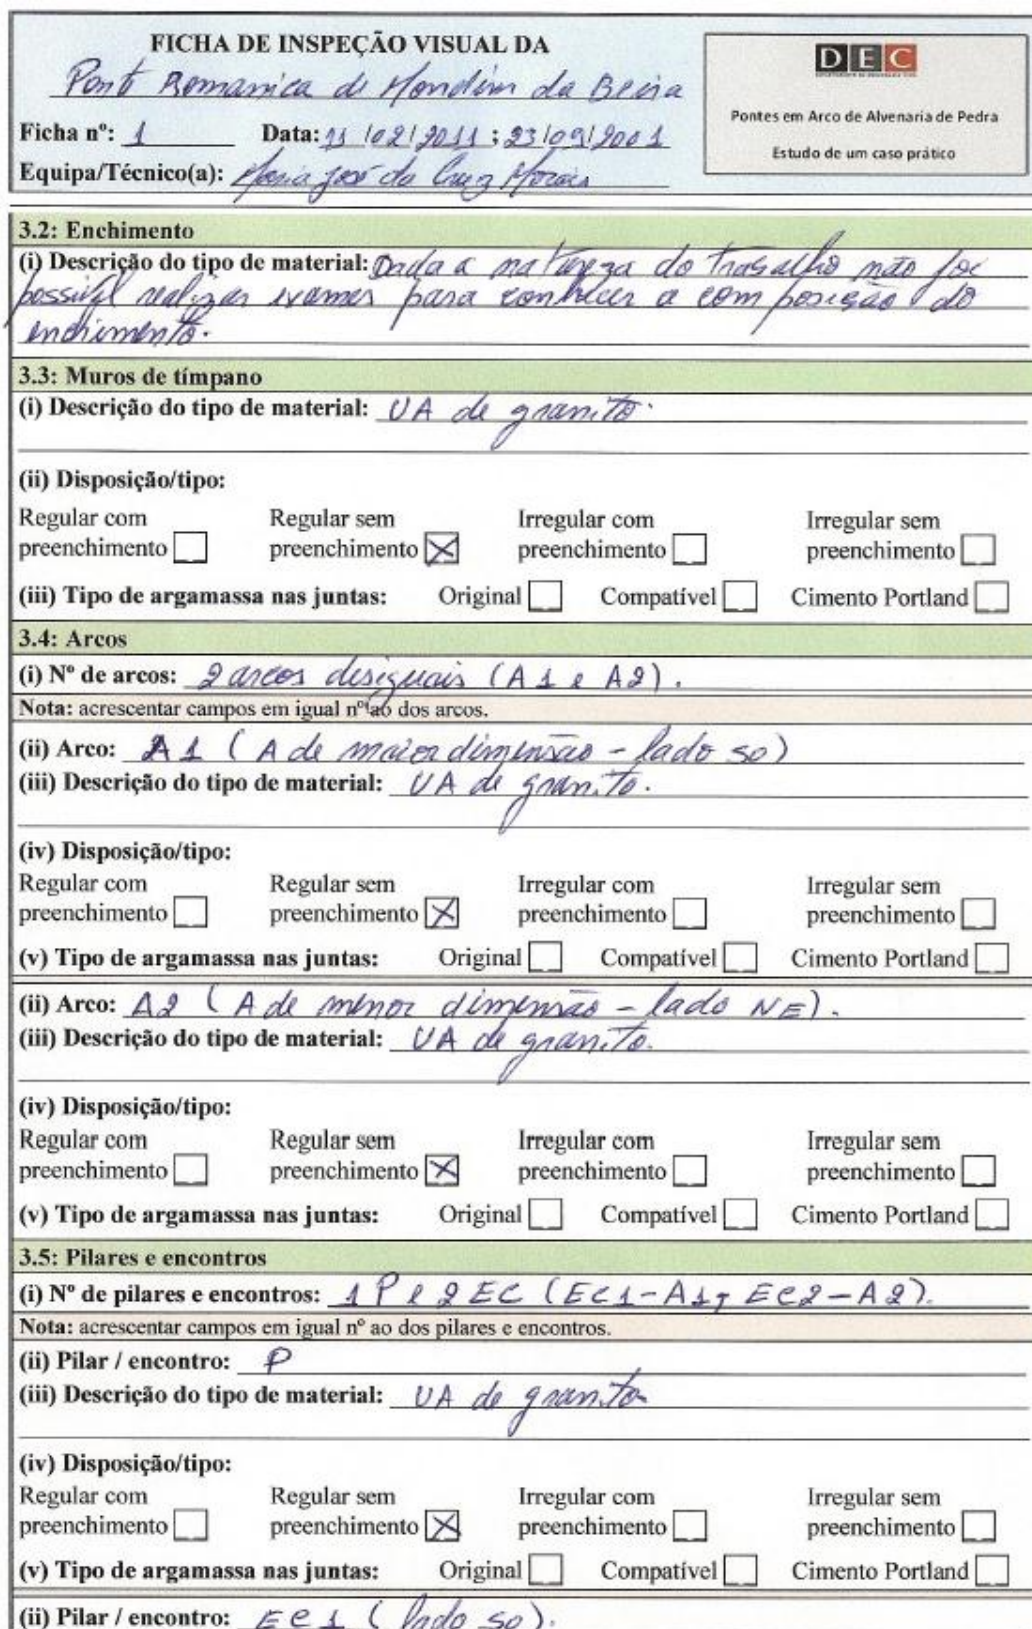 FICHA DE INSPEÇÃO VISUAL DA
Ponte Romanica de Mondim da Beira
Ficha nº: 1 Data: 11/02/2011 ; 23/09/2001
Equipa/Técnico(a): Maria José da Cruz Morais
DEC
Pontes em Arco de Alvenaria de Pedra
Estudo de um caso prático
3.2: Enchimento
(i) Descrição do tipo de material: Dada a natureza do trabalho não foi
possível realizar exames para conhecer a composição do
enchimento.
3.3: Muros de tímpano
(i) Descrição do tipo de material: UA de granito.
(ii) Disposição/tipo:
Regular com Regular sem Irregular com Irregular sem
preenchimento ☐ preenchimento ☒ preenchimento ☐ preenchimento ☐
(iii) Tipo de argamassa nas juntas: Original ☐ Compatível ☐ Cimento Portland ☐
3.4: Arcos
(i) Nº de arcos: 2 arcos desiguais (A1 e A2).
Nota: acrescentar campos em igual nº ao dos arcos.
(ii) Arco: A1 (A de maior dimensão - lado SO)
(iii) Descrição do tipo de material: UA de granito.
(iv) Disposição/tipo:
Regular com Regular sem Irregular com Irregular sem
preenchimento ☐ preenchimento ☒ preenchimento ☐ preenchimento ☐
(v) Tipo de argamassa nas juntas: Original ☐ Compatível ☐ Cimento Portland ☐
(ii) Arco: A2 (A de menor dimensão - lado NE).
(iii) Descrição do tipo de material: UA de granito.
(iv) Disposição/tipo:
Regular com Regular sem Irregular com Irregular sem
preenchimento ☐ preenchimento ☒ preenchimento ☐ preenchimento ☐
(v) Tipo de argamassa nas juntas: Original ☐ Compatível ☐ Cimento Portland ☐
3.5: Pilares e encontros
(i) Nº de pilares e encontros: 1 P e 2 EC (EC1-A1, EC2-A2).
Nota: acrescentar campos em igual nº ao dos pilares e encontros.
(ii) Pilar / encontro: P
(iii) Descrição do tipo de material: UA de granito
(iv) Disposição/tipo:
Regular com Regular sem Irregular com Irregular sem
preenchimento ☐ preenchimento ☒ preenchimento ☐ preenchimento ☐
(v) Tipo de argamassa nas juntas: Original ☐ Compatível ☐ Cimento Portland ☐
(ii) Pilar / encontro: EC1 (lado SO).